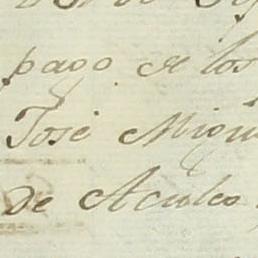 pago de los
José Migu
de Aculco